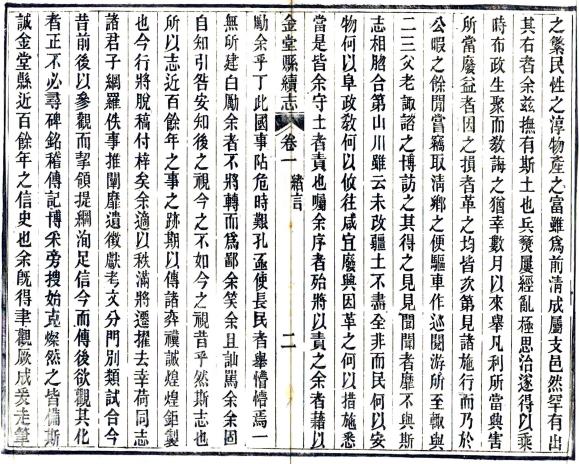 之繁民性之淳物產之富雖爲前清成屬支邑然罕有出
其右者余茲撫有斯土也兵燹屢經亂極思治遂得以乘
時布政生聚而教誨之猶幸數月以來舉凡利所當興害
所當廢益者因之損者革之均皆次第見諸施行而乃於
公暇之餘閒嘗竊取清鄉之便驅車作巡閱游所至輒與
二三父老諏諮之博訪之其得之見見聞聞者靡不與斯
志相脗合第山川雖云未改疆土不盡全非而民何以安
物何以阜政敎何以攸往咸宜廢興因革之何以措施悉
當是皆余守土者責也囑余序者殆將以責之余者藉以
勵余乎丁此國事阽危時艱孔亟使長民者舉懵懵焉一
無所建白勵余者不將轉而爲鄙余笑余且訕罵余余固
自知引咎安知後之視今之不如今之視昔乎然斯志也
所以志近百餘年之事之跡期以傳諸弈禩誠煌煌鉅製
也今行將脫稿付梓矣余適以秩滿將遷擢去幸荷同志
諸君子網羅佚事推闡靡遺徵獻考文分門別類試合今
昔前後以參觀而挈領提綱洵足信今而傳後欲觀其化
者正不必尋碑銘稽傳記博采旁搜始克燦然之皆備斯
誠金堂縣近百餘年之信史也余既得聿觀厥成爰走筆
金堂縣續志
卷一
緒言
二